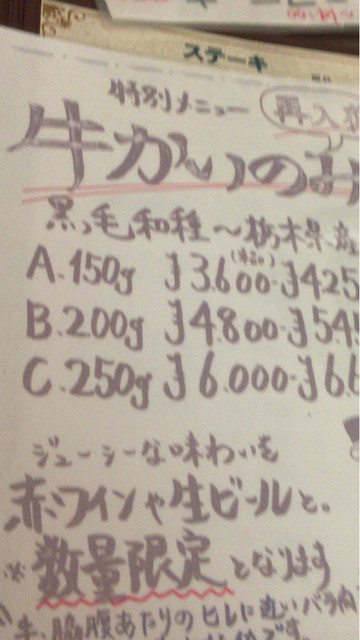 ステーキ
特別メニュー
再入
牛かいのみ
黒毛和種～栃木県産
A.150g 3.600- 425
B.200g 4.800- 54
C.250g 6.000- 6.6
ジューシーな味わいを
赤ワインや生ビールと。
※数量限定となります
牛、脇腹あたりのヒレに近いバラ肉